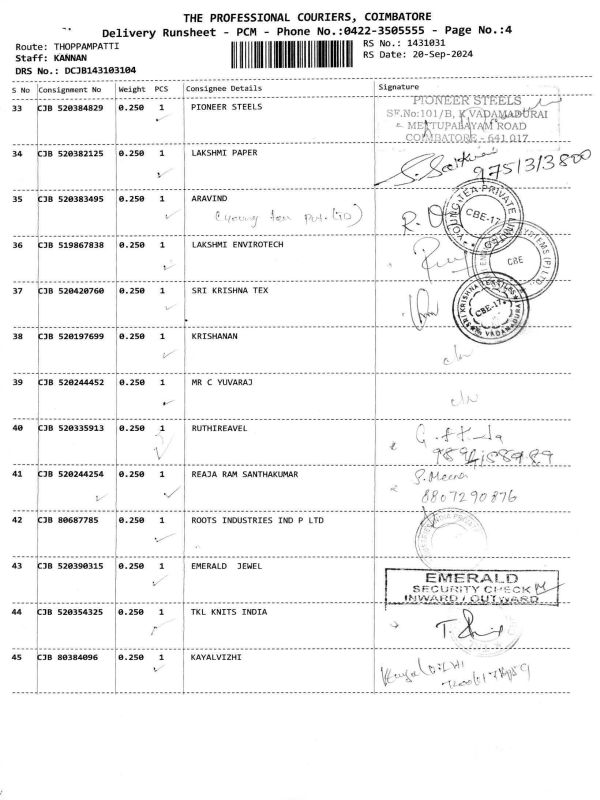 THE PROFESSIONAL COURIERS, COIMBATORE
Delivery Runsheet - PCM - Phone No.:0422-3505555 - Page No.:4
Route: THOPPAMPATTI
Staff: KANNAN
DRS No.: DCJB143103104
RS No.: 1431031
RS Date: 20-Sep-2024
S No Consignment No Weight PCS Consignee Details Signature
33 CJB 520384829 0.250 1 PIONEER STEELS
PIONEER STEELS
SF.No:101/B, K VADAMADURAI
METTUPALAYAM ROAD
COIMBATORE - 641 017
34 CJB 520382125 0.250 1 LAKSHMI PAPER
9751313800
35 CJB 520383495 0.250 1 ARAVIND
(young tea Pvt. LTD)
YOUNG TEA PRIVATE LIMITED
CBE-17
36 CJB 519867838 0.250 1 LAKSHMI ENVIROTECH
CBE
37 CJB 520420760 0.250 1 SRI KRISHNA TEX
SRI KRISHNA TEXTILES
CBE-17
VADAMADURAI
38 CJB 520197699 0.250 1 KRISHANAN
39 CJB 520244452 0.250 1 MR C YUVARAJ
40 CJB 520335913 0.250 1 RUTHIREAVEL
41 CJB 520244254 0.250 1 REAJA RAM SANTHAKUMAR
S. Meena
8807290876
42 CJB 80687785 0.250 1 ROOTS INDUSTRIES IND P LTD
43 CJB 520390315 0.250 1 EMERALD JEWEL
EMERALD
SECURITY CHECK
INWARD / OUTWARD
44 CJB 520354325 0.250 1 TKL KNITS INDIA
45 CJB 80384096 0.250 1 KAYALVIZHI